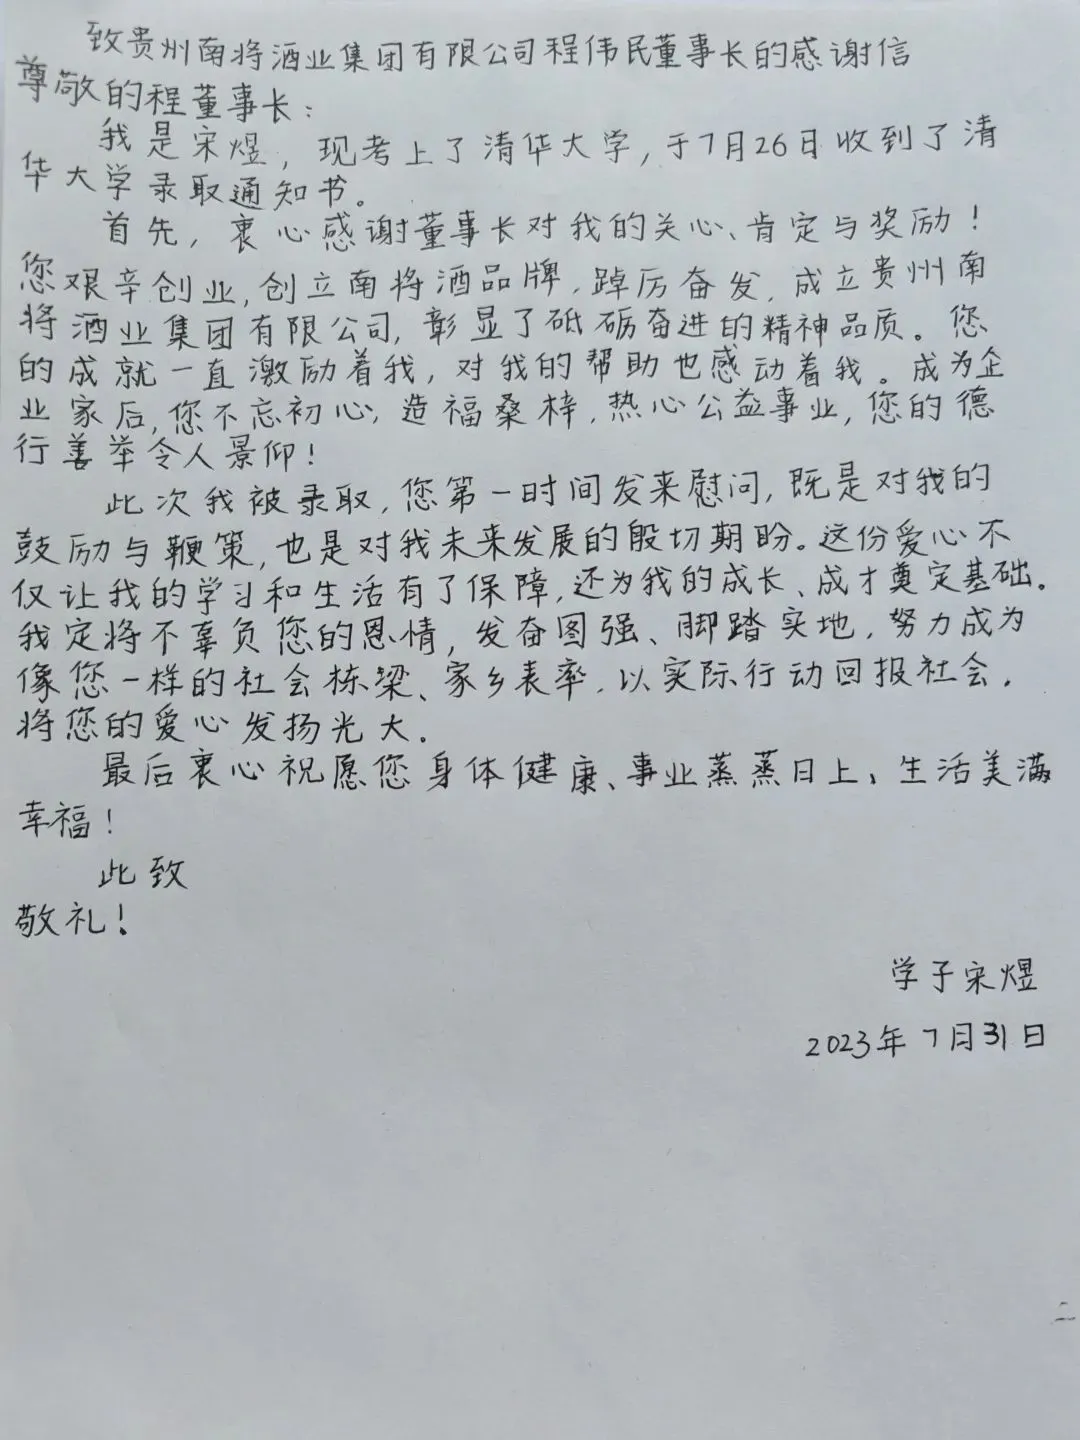 致贵州南将酒业集团有限公司程伟民董事长的感谢信
尊敬的程董事长：
我是宋煜，现考上了清华大学，于7月26日收到了清
华大学录取通知书。
首先，衷心感谢董事长对我的关心、肯定与奖励！
您艰辛创业，创立南将酒品牌，踔厉奋发，成立贵州南
将酒业集团有限公司，彰显了砥砺奋进的精神品质。您
的成就一直激励着我，对我的帮助也感动着我。成为企
业家后，您不忘初心，造福桑梓，热心公益事业，您的德
行善举令人景仰！
此次我被录取，您第一时间发来慰问，既是对我的
鼓励与鞭策，也是对我未来发展的殷切期盼。这份爱心不
仅让我的学习和生活有了保障，还为我的成长、成才奠定基础。
我定将不辜负您的恩情，发奋图强、脚踏实地，努力成为
像您一样的社会栋梁、家乡表率，以实际行动回报社会，
将您的爱心发扬光大。
最后衷心祝愿您身体健康、事业蒸蒸日上、生活美满
幸福！
此致
敬礼！
学子宋煜
2023年7月31日